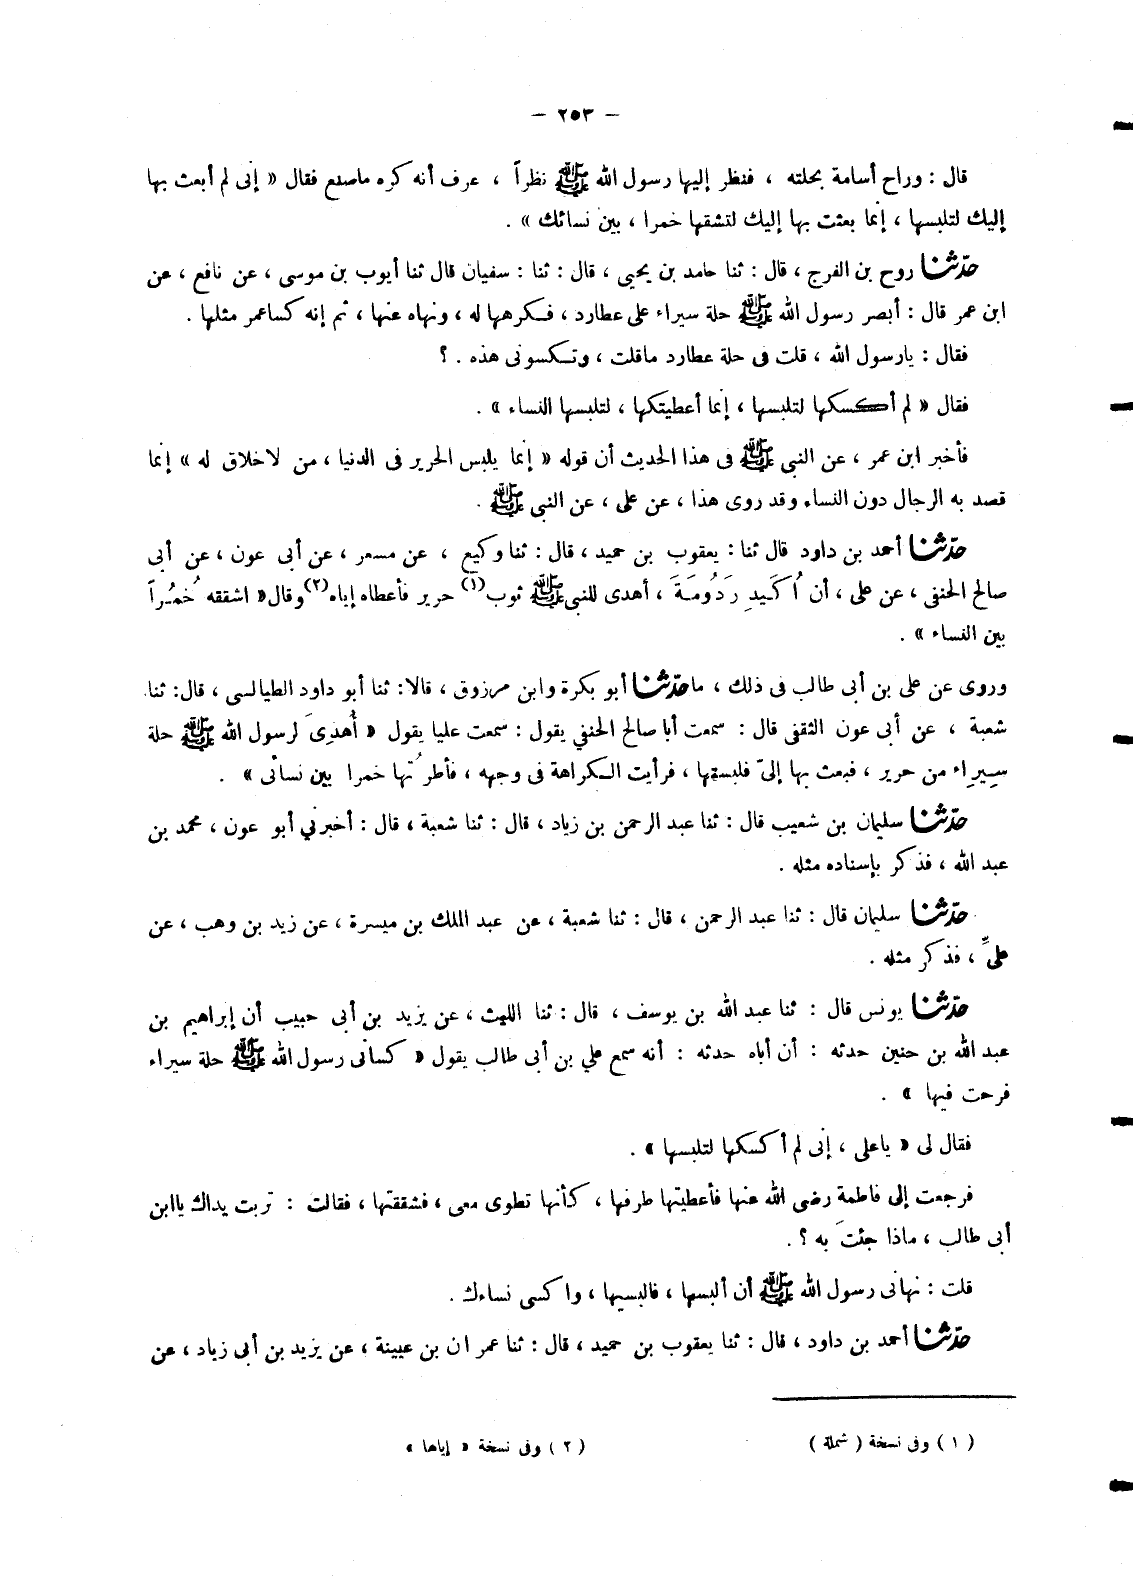 — ٢٥٣ —
قال : وراح أسامة بحلته ، فنظر إليها رسول الله ﷺ نظراً ، عرف أنه كره ماصنع فقال « إنى لم أبعث بها
إليك لتلبسها ، إنما بعثت بها إليك لتشقها خمرا ، بين نسائك » .
حدّثنا روح بن الفرج ، قال : ثنا حامد بن يحيى ، قال : ثنا : سفيان قال ثنا أيوب بن موسى ، عن نافع ، عن
ابن عمر قال : أبصر رسول الله ﷺ حلة سيراء على عطارد ، فكرهها له ، ونهاه عنها ، ثم إنه كساعمر مثلها .
فقال : يارسول الله ، قلت فى حلة عطارد ماقلت ، وتكسونى هذه . ؟
فقال « لم أكسكها لتلبسها ، إنما أعطيتكها ، لتلبسها النساء » .
فأخبر ابن عمر ، عن النبي ﷺ فى هذا الحديث أن قوله « إنما يلبس الحرير فى الدنيا ، من لاخلاق له » إنما
قصد به الرجال دون النساء وقد روى هذا ، عن على ، عن النبي ﷺ .
حدّثنا أحمد بن داود قال ثنا : يعقوب بن حميد ، قال : ثنا وكيع ، عن مسعر ، عن أبى عون ، عن أبى
صالح الحنفى ، عن على ، أن أُكَيدِرَدُومَةَ ، أهدى للنبي ﷺ ثوب(١) حرير فأعطاه إياه(٢) وقال « اشققه خُمُراً
بين النساء » .
وروى عن على بن أبى طالب فى ذلك ، ماحدّثنا أبو بكرة وابن مرزوق ، قالا : ثنا أبو داود الطيالسى ، قال : ثنا
شعبة ، عن أبى عون الثقفى قال : سمعت أبا صالح الحنفي يقول : سمعت عليا يقول « أُهدِىَ لرسول الله ﷺ حلة
سِيرِاء من حرير ، فبعث بها إلىّ فلبستها ، فرأيت الكراهة فى وجهه ، فأطرتُها خمرا بين نسائى » .
حدّثنا سليمان بن شعيب قال : ثنا عبد الرحمن بن زياد ، قال : ثنا شعبة ، قال : أخبرني أبو عون ، محمد بن
عبد الله ، فذكر بإسناده مثله .
حدّثنا سليمان قال : ثنا عبد الرحمن ، قال : ثنا شعبة ، عن عبد الملك بن ميسرة ، عن زيد بن وهب ، عن
علىٍّ ، فذكر مثله .
حدّثنا يونس قال : ثنا عبد الله بن يوسف ، قال : ثنا الليث ، عن يزيد بن أبى حبيب أن إبراهيم بن
عبد الله بن حنين حدثه : أن أباه حدثه : أنه سمع علي بن أبى طالب يقول « كسانى رسول الله ﷺ حلة سيراء
فرحت فيها » .
فقال لى « ياعلى ، إنى لم أكسكها لتلبسها » .
فرجعت إلى فاطمة رضى الله عنها فأعطيتها طرفها ، كأنها تطوى معى ، فشققتها ، فقالت : تربت يداك ياابن
أبى طالب ، ماذا جئتَ به ؟ .
قلت : نهانى رسول الله ﷺ أن ألبسها ، فالبسيها ، واكسى نساءك .
حدّثنا أحمد بن داود ، قال : ثنا يعقوب بن حميد ، قال : ثنا عمران بن عيينة ، عن يزيد بن أبى زياد ، عن
(١) وفى نسخة ( شملة )
(٢) وفى نسخة « إياها »